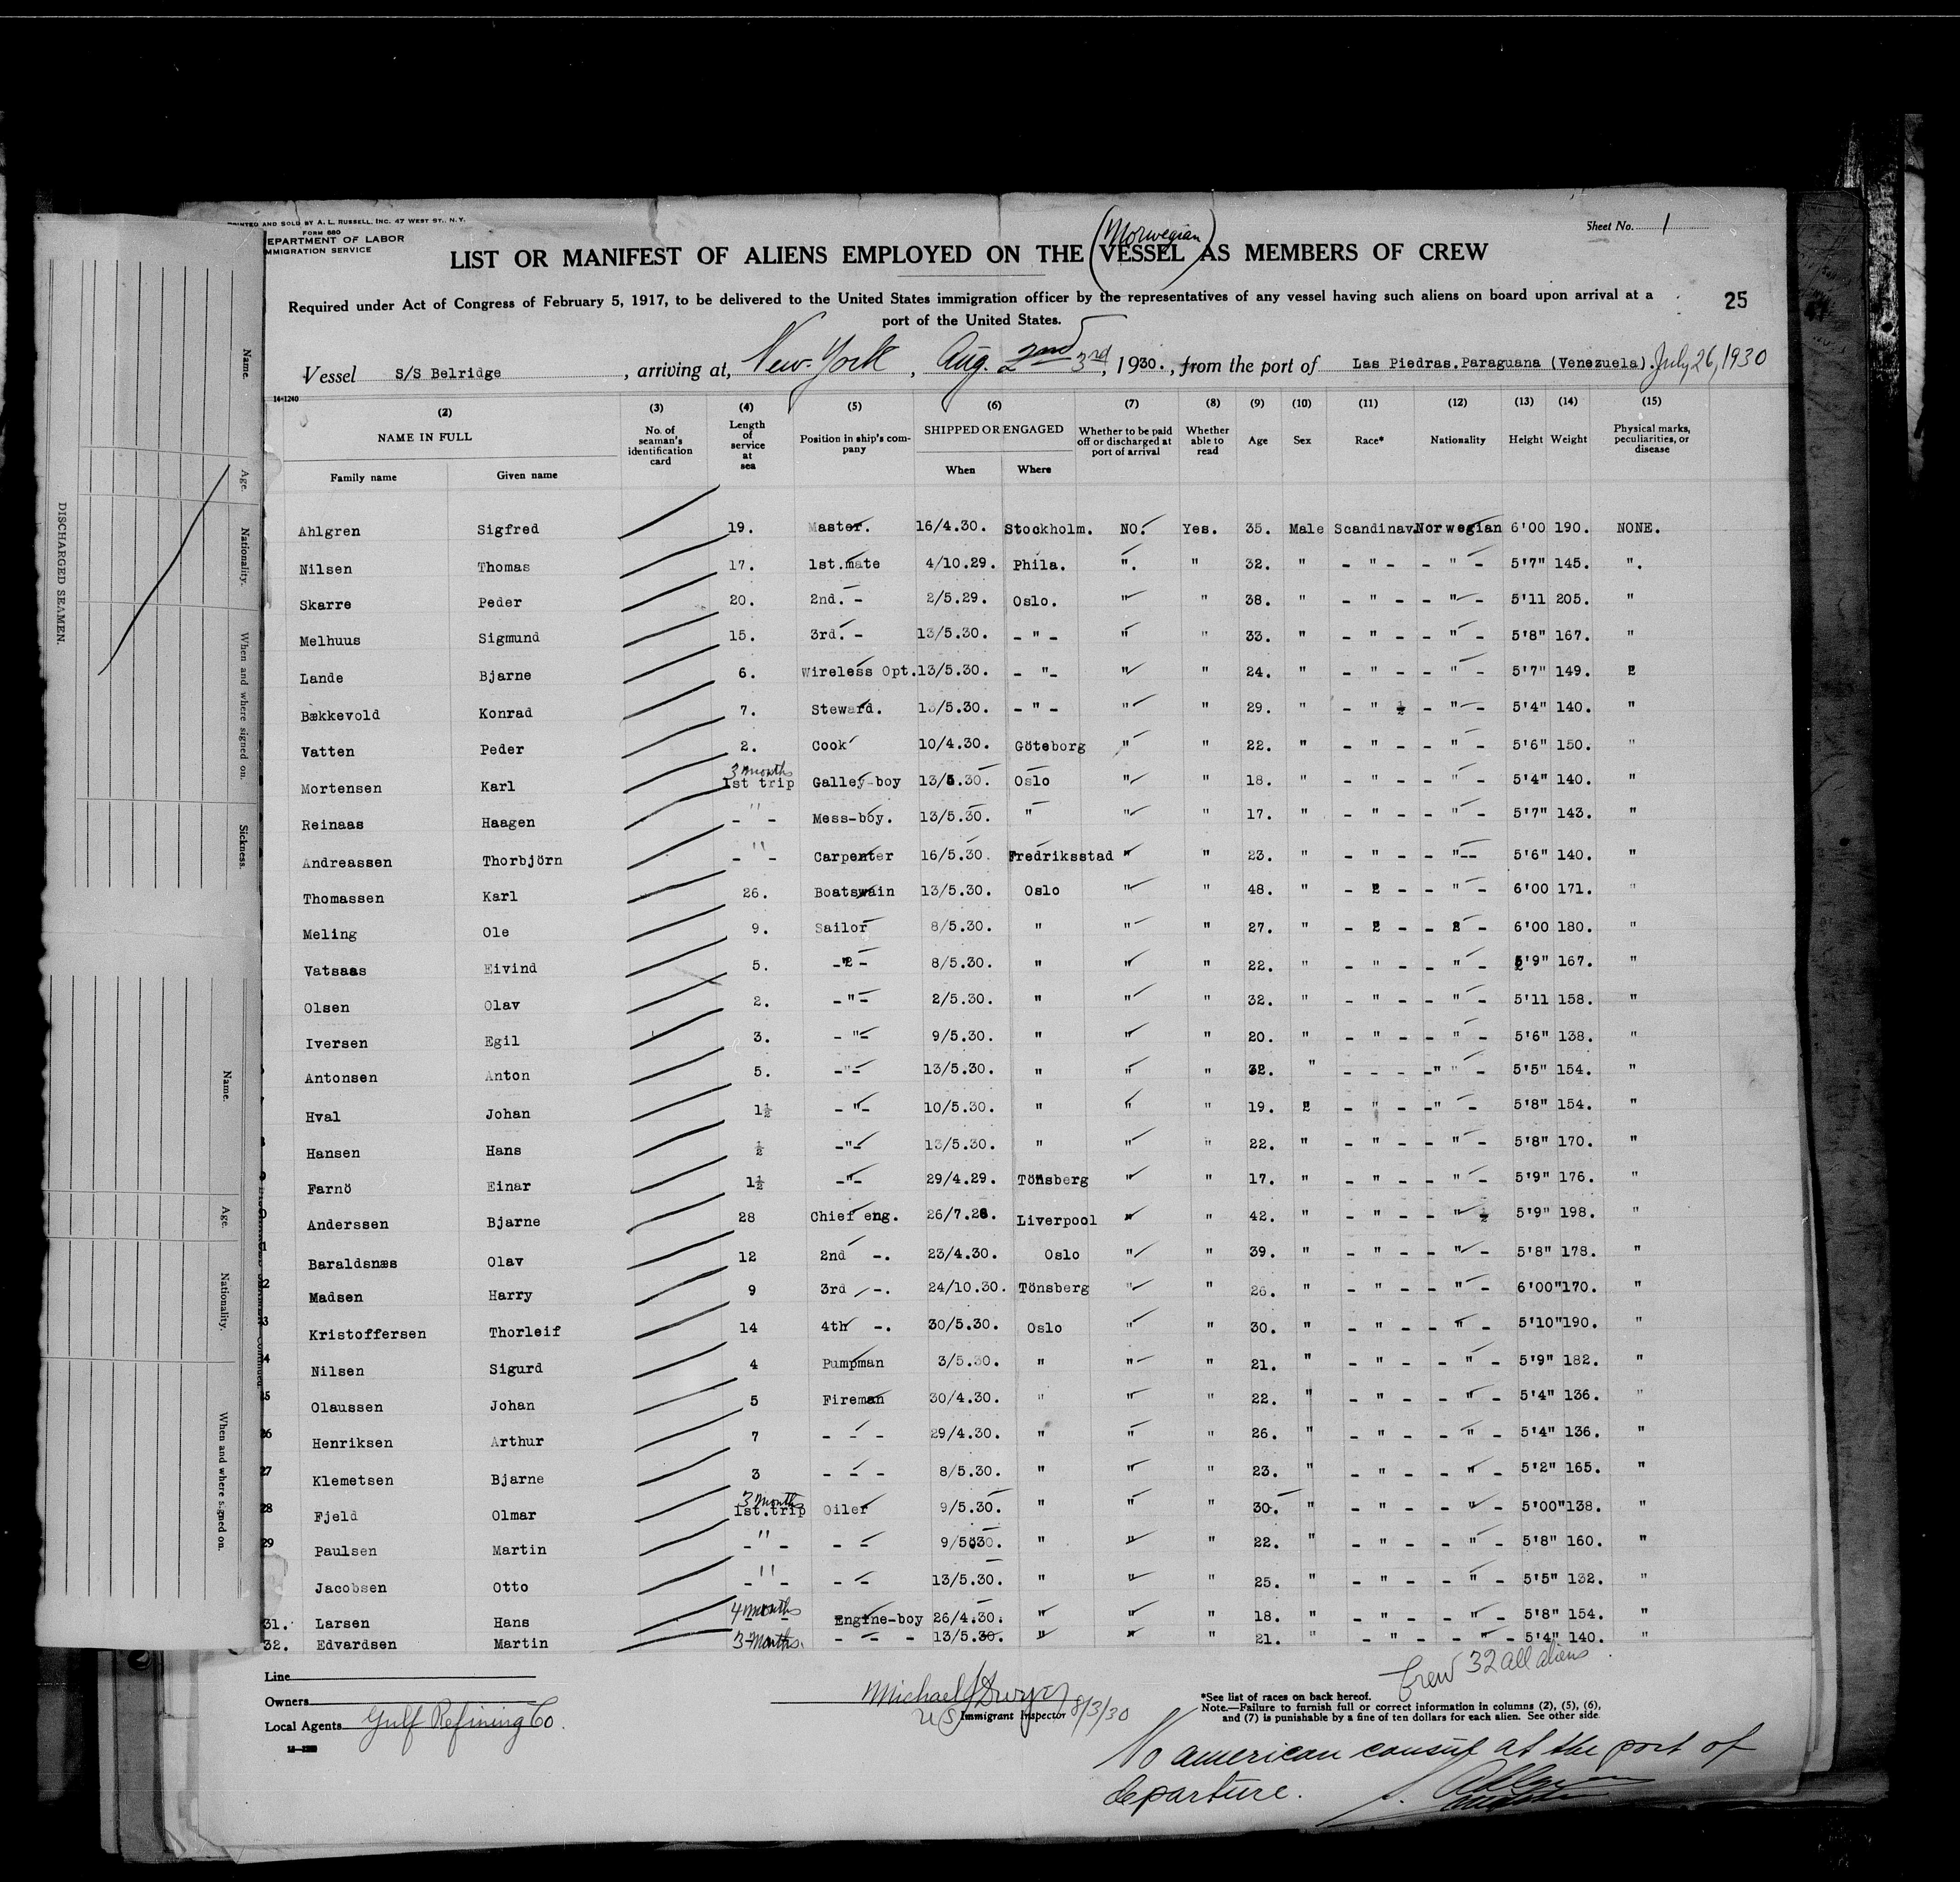 PRINTED AND SOLD BY A. L. RUSSELL, INC. 47 WEST ST., N.Y.
FORM 680
EPARTMENT OF LABOR
MMIGRATION SERVICE
Sheet No. 1
(Norwegian)
LIST OR MANIFEST OF ALIENS EMPLOYED ON THE VESSEL AS MEMBERS OF CREW
Required under Act of Congress of February 5, 1917, to be delivered to the United States immigration officer by the representatives of any vessel having such aliens on board upon arrival at a
port of the United States.
25
Vessel S/S Belridge, arriving at, New-York, Aug. 2nd 3rd, 1930., from the port of Las Piedras.Paraguana (Venezuela). July 26, 1930
14-1240
(2) (3) (4) (5) (6) (7) (8) (9) (10) (11) (12) (13) (14) (15)
NAME IN FULL No. of seaman's identification card Length of service at sea Position in ship's company SHIPPED OR ENGAGED Whether to be paid off or discharged at port of arrival Whether able to read Age Sex Race* Nationality Height Weight Physical marks, peculiarities, or disease
Family name Given name When Where
Ahlgren Sigfred 19. Master. 16/4.30. Stockholm. NO. Yes. 35. Male Scandinav. Norwegian 6'00 190. NONE.
Nilsen Thomas 17. 1st.mate 4/10.29. Phila. ". " 32. " - " - - " - 5'7" 145. ".
Skarre Peder 20. 2nd. - 2/5.29. Oslo. " " 38. " - " - - " - 5'11 205. "
Melhuus Sigmund 15. 3rd. - 13/5.30. - " - " " 33. " - " - - " - 5'8" 167. "
Lande Bjarne 6. Wireless Opt. 13/5.30. - "- " " 24. " - " - - " - 5'7" 149. "
Bækkevold Konrad 7. Steward. 13/5.30. - " - " " 29. " - " - - " - 5'4" 140. "
Vatten Peder 2. Cook 10/4.30. Göteborg " " 22. " - " - - " - 5'6" 150. "
Mortensen Karl 3 months 1st trip Galley-boy 13/5.30. Oslo " " 18. " - " - - " - 5'4" 140. "
Reinaas Haagen - " - Mess-boy. 13/5.30. " " " 17. " - " - - " - 5'7" 143. "
Andreassen Thorbjörn - " - Carpenter 16/5.30. Fredriksstad " " 23. " - " - - "-- 5'6" 140. "
Thomassen Karl 26. Boatswain 13/5.30. Oslo " " 48. " - " - - " - 6'00 171. "
Meling Ole 9. Sailor 8/5.30. " " " 27. " - " - - " - 6'00 180. "
Vatsaas Eivind 5. -"- 8/5.30. " " " 22. " - " - - " - 5'9" 167. "
Olsen Olav 2. -"- 2/5.30. " " " 32. " - " - - " - 5'11 158. "
Iversen Egil 3. - "- 9/5.30. " " " 20. " - " - - " - 5'6" 138. "
Antonsen Anton 5. -"- 13/5.30. " " " 32. " - - - -" " - 5'5" 154. "
Hval Johan 1½ - "- 10/5.30. " " " 19. " - " - -" - 5'8" 154. "
Hansen Hans ½ -"- 13/5.30. " " " 22. " - " - - " - 5'8" 170. "
Farnö Einar 1½ -"- 29/4.29. Tönsberg " " 17. " - " - - " - 5'9" 176. "
Anderssen Bjarne 28 Chief eng. 26/7.28. Liverpool " " 42. " - " - - " 5'9" 198. "
Baraldsnæs Olav 12 2nd -. 23/4.30. Oslo " " 39. " - " - - " - 5'8" 178. "
Madsen Harry 9 3rd -. 24/10.30. Tönsberg " " 26. " - " - - " - 6'00" 170. "
Kristoffersen Thorleif 14 4th -. 30/5.30. Oslo " " 30. " - " - - " - 5'10" 190. "
Nilsen Sigurd 4 Pumpman 3/5.30. " " " 21. " - " - - " - 5'9" 182. "
Olaussen Johan 5 Fireman 30/4.30. " " " 22. " - " - - " - 5'4" 136. "
26 Henriksen Arthur 7 - - - 29/4.30. " " " 26. " - " - - " - 5'4" 136. "
27 Klemetsen Bjarne 3 - - - 8/5.30. " " " 23. " - " - - " - 5'2" 165. "
28 Fjeld Olmar 3 months 1st.trip Oiler 9/5.30. " " " 30. " - " - - " - 5'00" 138. "
29 Paulsen Martin - " - - - 9/5.30. " " " 22. " - " - - " - 5'8" 160. "
Jacobsen Otto - " - - - 13/5.30. " " " 25. " - " - - " - 5'5" 132. "
31. Larsen Hans 4 months Engine-boy 26/4.30. " " " 18. " - " - - " - 5'8" 154. "
32. Edvardsen Martin 3 Months. - - - 13/5.30. " " " 21. " - " - - " - 5'4" 140. "
Crew 32 all aliens
Line
Owners
Local Agents Gulf Refining Co.
Michael J Dwyer
US Immigrant Inspector 8/3/30
*See list of races on back hereof.
Note.—Failure to furnish full or correct information in columns (2), (5), (6),
and (7) is punishable by a fine of ten dollars for each alien. See other side.
No american consul at the port of
departure.
DISCHARGED SEAMEN.
Name. Age. Nationality. When and where signed on. Sickness.
Name. Age. Nationality. When and where signed on.